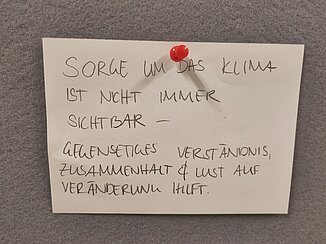 SORGE UM DAS KLIMA
IST NICHT IMMER
SICHTBAR –
GEGENSEITIGES VERSTÄNDNIS,
ZUSAMMENHALT & LUST AUF
VERÄNDERUNG HILFT.